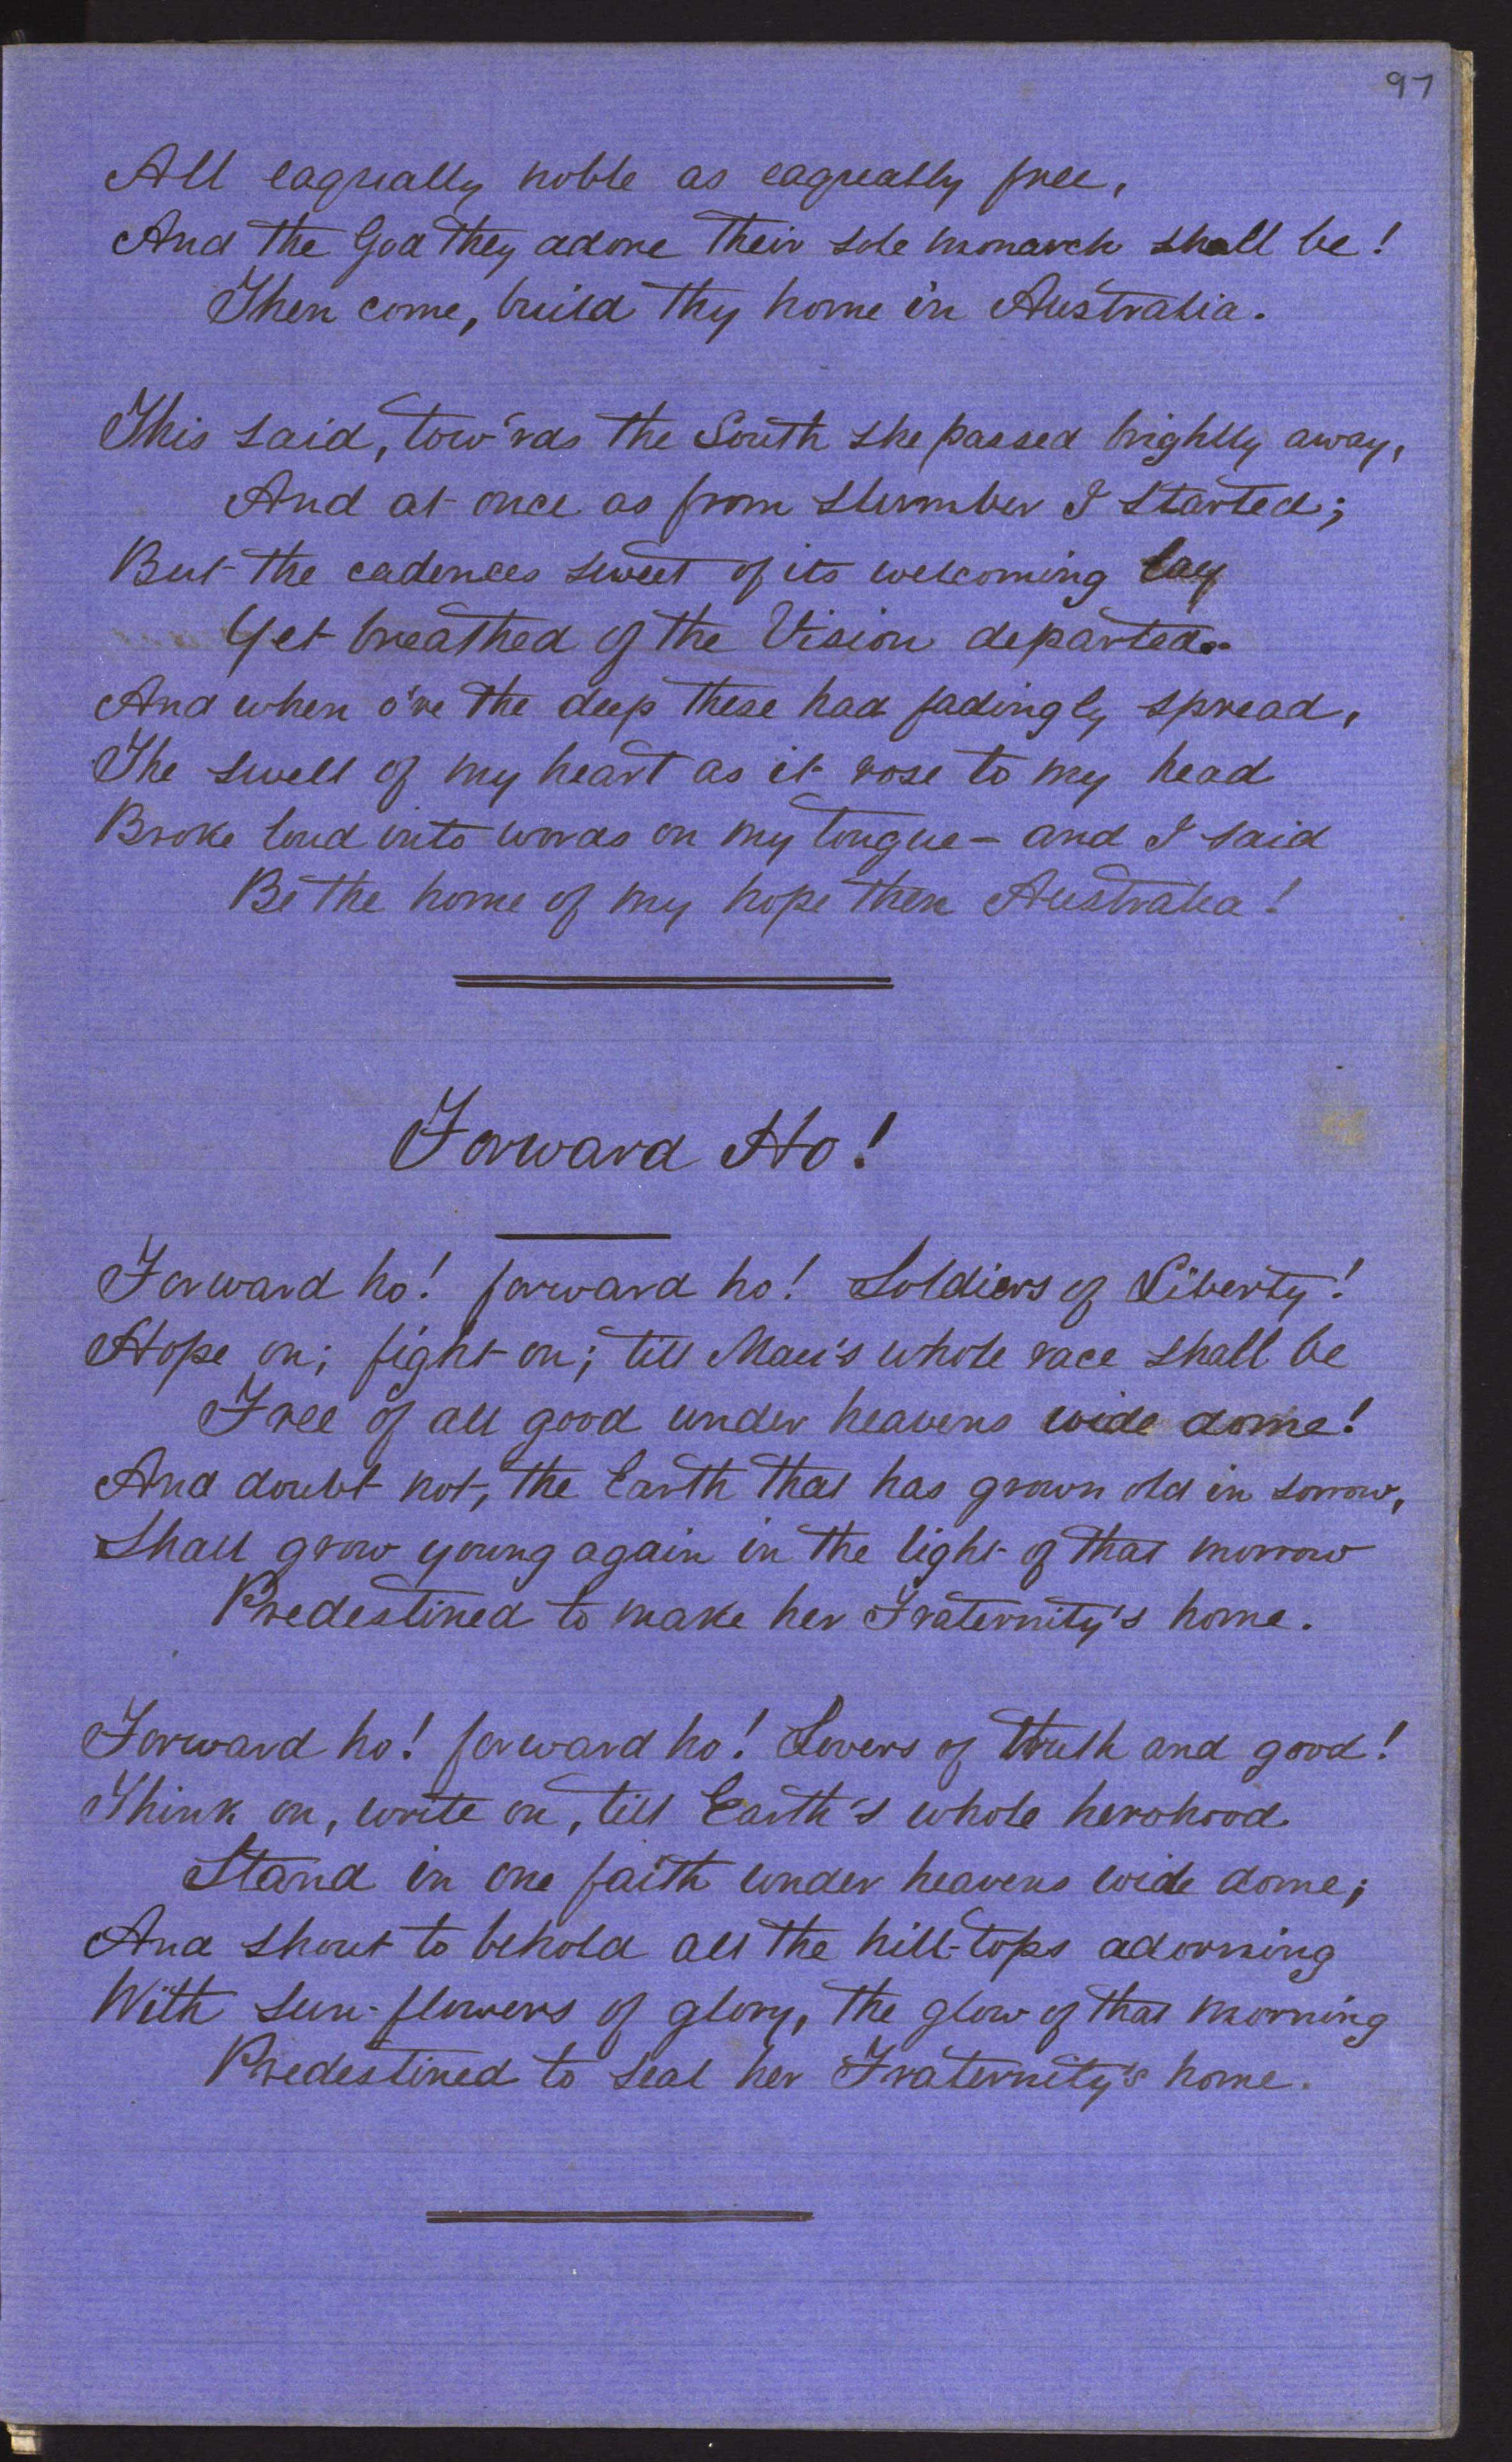 97
All eaqually noble as eaqually free,
And the God they adore their sole monarch shall be!
Then come, build thy home in Australia.
This said, tow'rds the South she passed brightly away,
And at once as from slumber I started;
But the cadences sweet of its welcoming lay
Yet breathed of the Vision departed.
And when o're the deep these had fadingly spread,
The swell of my heart as it rose to my head
Broke loud into words on my tongue – and I said
Be the home of my hope then Australia!
Forward Ho!
Forward ho! forward ho! Soldiers of Liberty!
Hope on; fight on; till Man's whole race shall be
Free of all good under heavens wide dome!
And doubt not, the Earth that has grown old in sorrow,
Shall grow young again in the light of that morrow
Predestined to make her Fraternity's home.
Forward ho! forward ho! Lovers of truth and good!
Think on, write on, till Earth's whole herohood
Stand in one faith under heavens wide dome;
And shout to behold all the hill-tops adorning
With sun-flowers of glory, the glow of that morning
Predestined to seal her Fraternity's home.